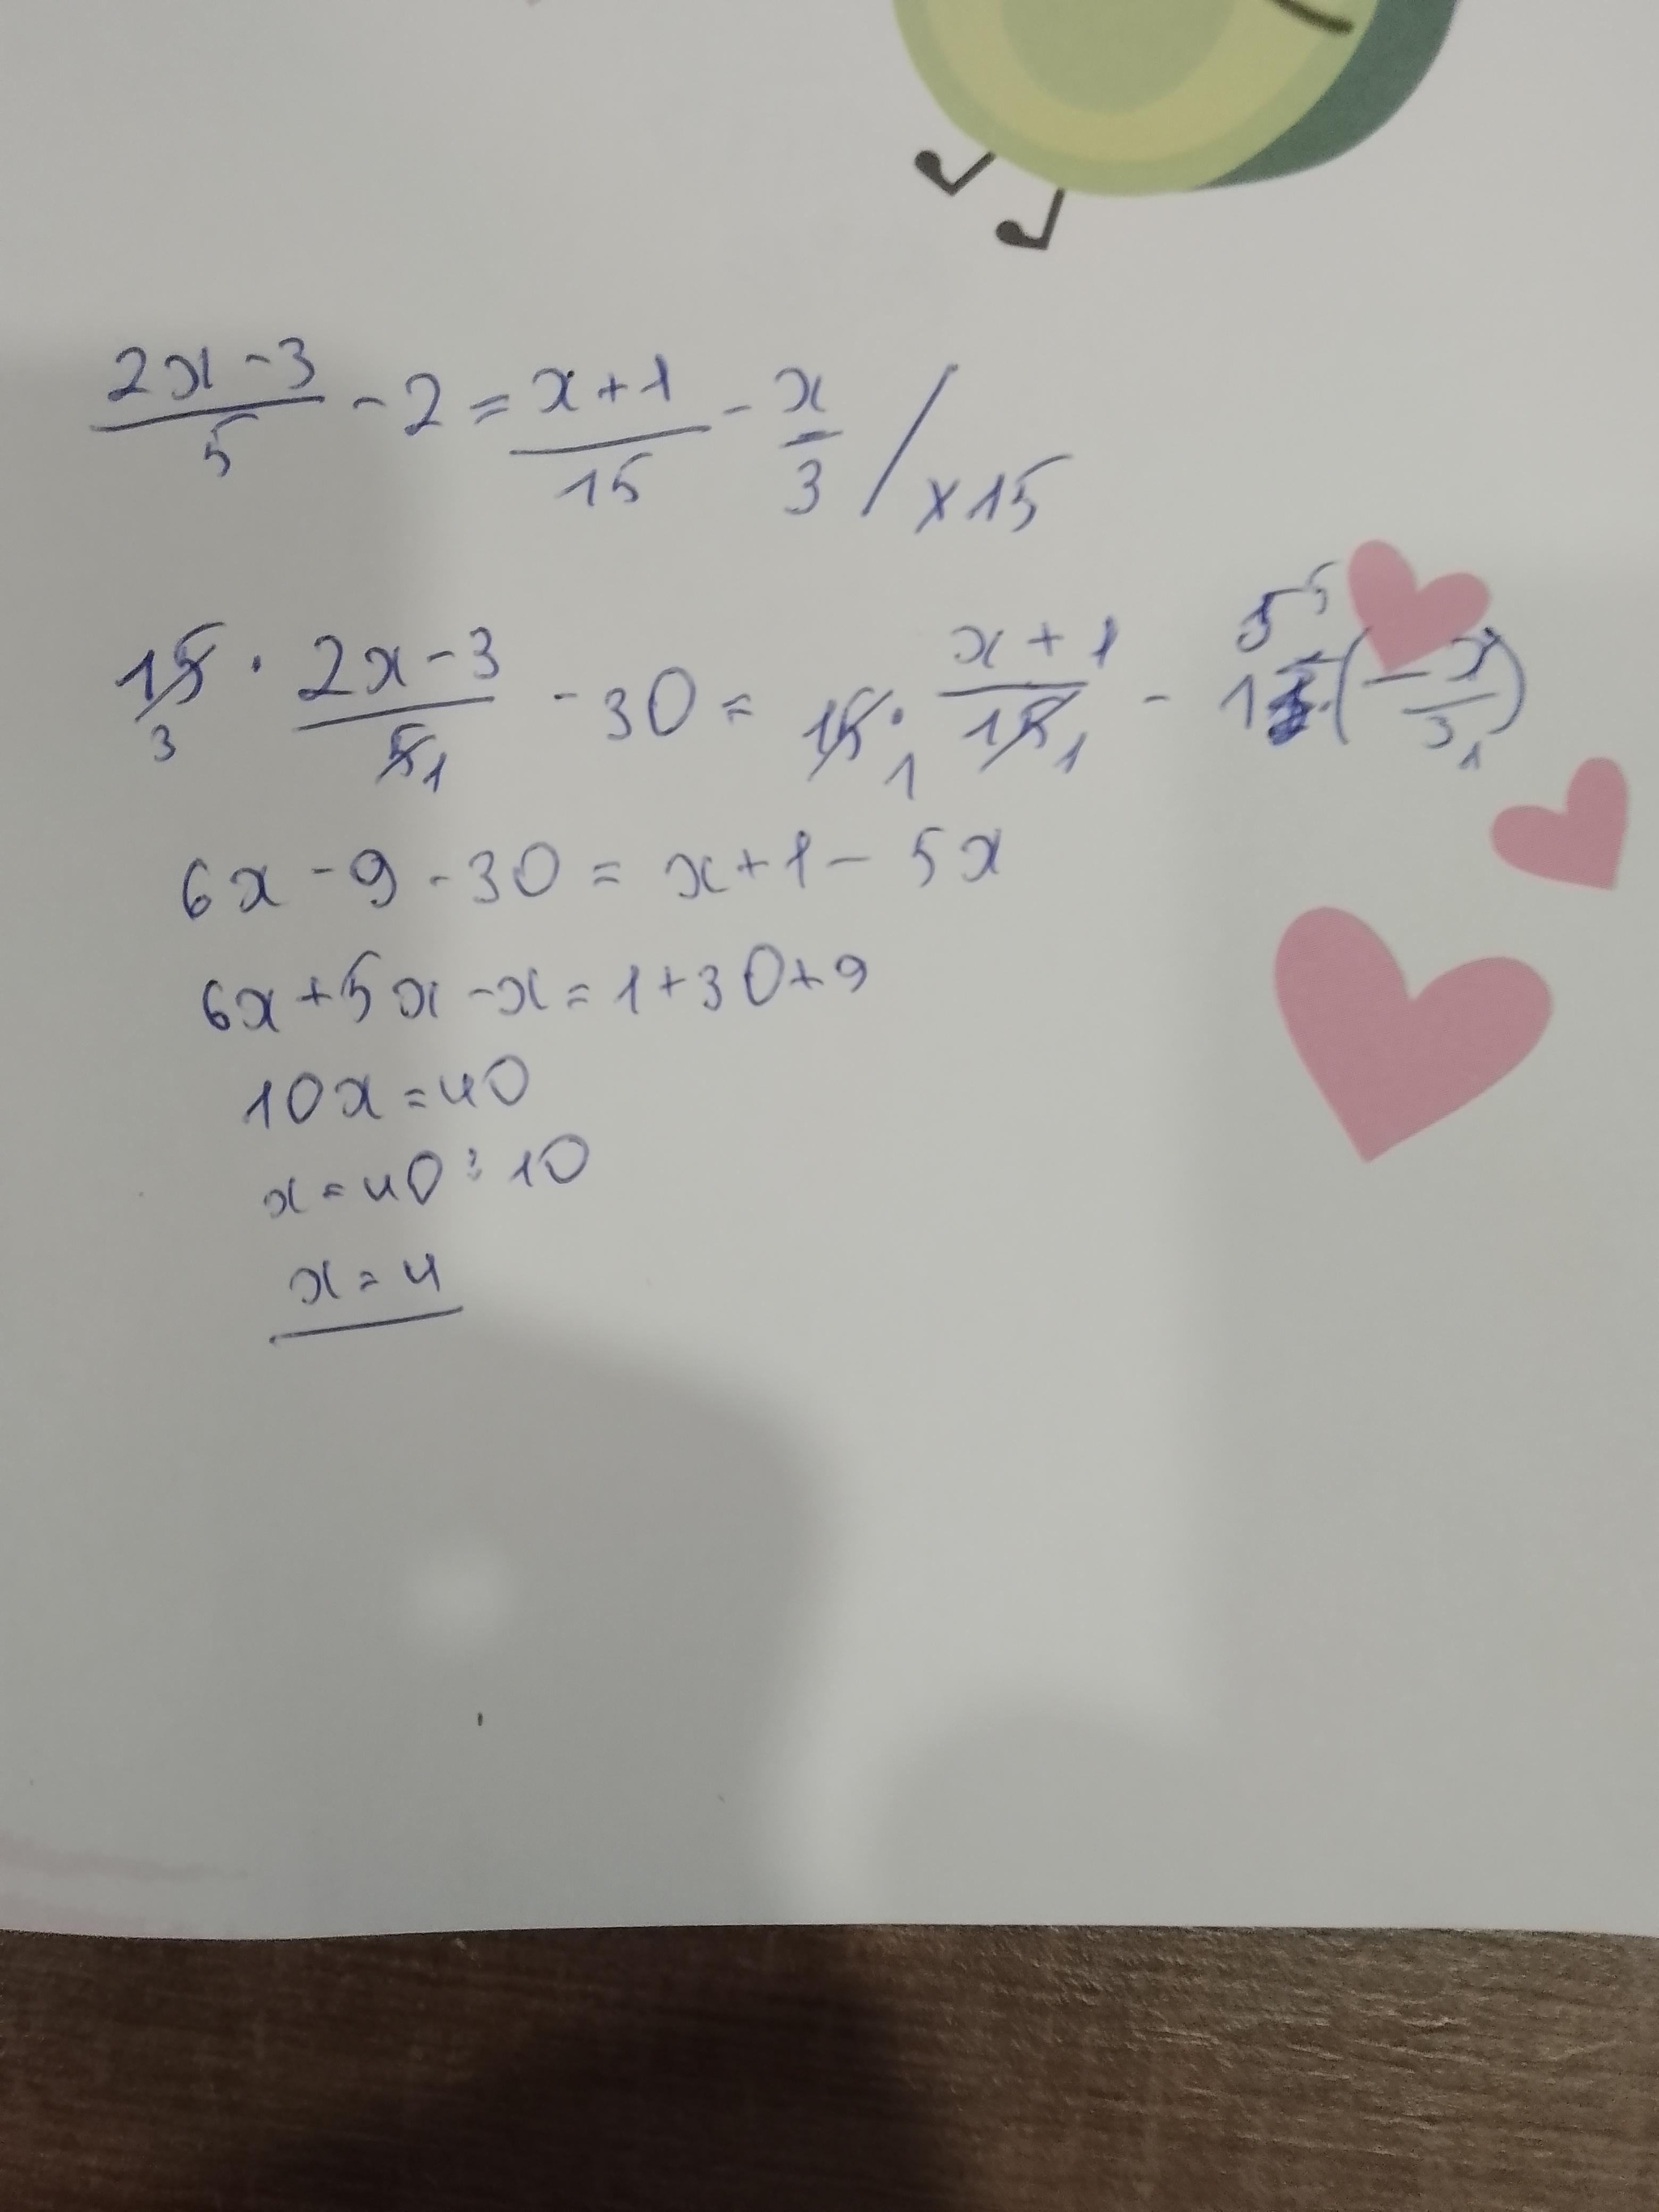 2x-3/5 - 2 = x+1/15 - x/3 / x15
15 3 · 2x-3/5 1 - 30 = 15 1 · x+1/15 1 - 15 5 (-x/3 1)
6x - 9 - 30 = x + 1 - 5x
6x + 5x - x = 1 + 30 + 9
10x = 40
x = 40 : 10
x = 4